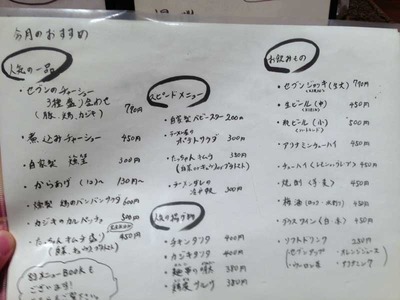 今月のおすすめ
人気の一品
・セブンのチャーシュー
3種盛り合わせ
(豚、鶏、カジキ) 790円
・煮込みチャーシュー 450円
・自家製 燻製 300円
・からあげ (1コ)〜 130円〜
・燻製 鶏のバンバンサラダ 600円
・カジキのカルパッチョ 500円
450円
メニューBookも
ございます!
スピードメニュー
・自家製ベビースター 200円
・ラーメン屋の
ポテトサラダ 300円
・たっちゃんキムチ 380円
・ラーメンダレの
冷奴 300円
人気の揚げ物
・チキンカツ 400円
・カジキカツ 400円
380円
380円
お飲みもの
・セブンジョッキ(生大) 790円
・生ビール(中) 450円
・瓶ビール(小) 500円
450円
・チューハイ(レモン、ウーロン) 450円
・焼酎(芋、麦) 450円
・梅酒(ロック、水割り) 450円
・グラスワイン(白・赤) 450円
・ソフトドリンク 280円
オレンジジュース
・ウーロン茶